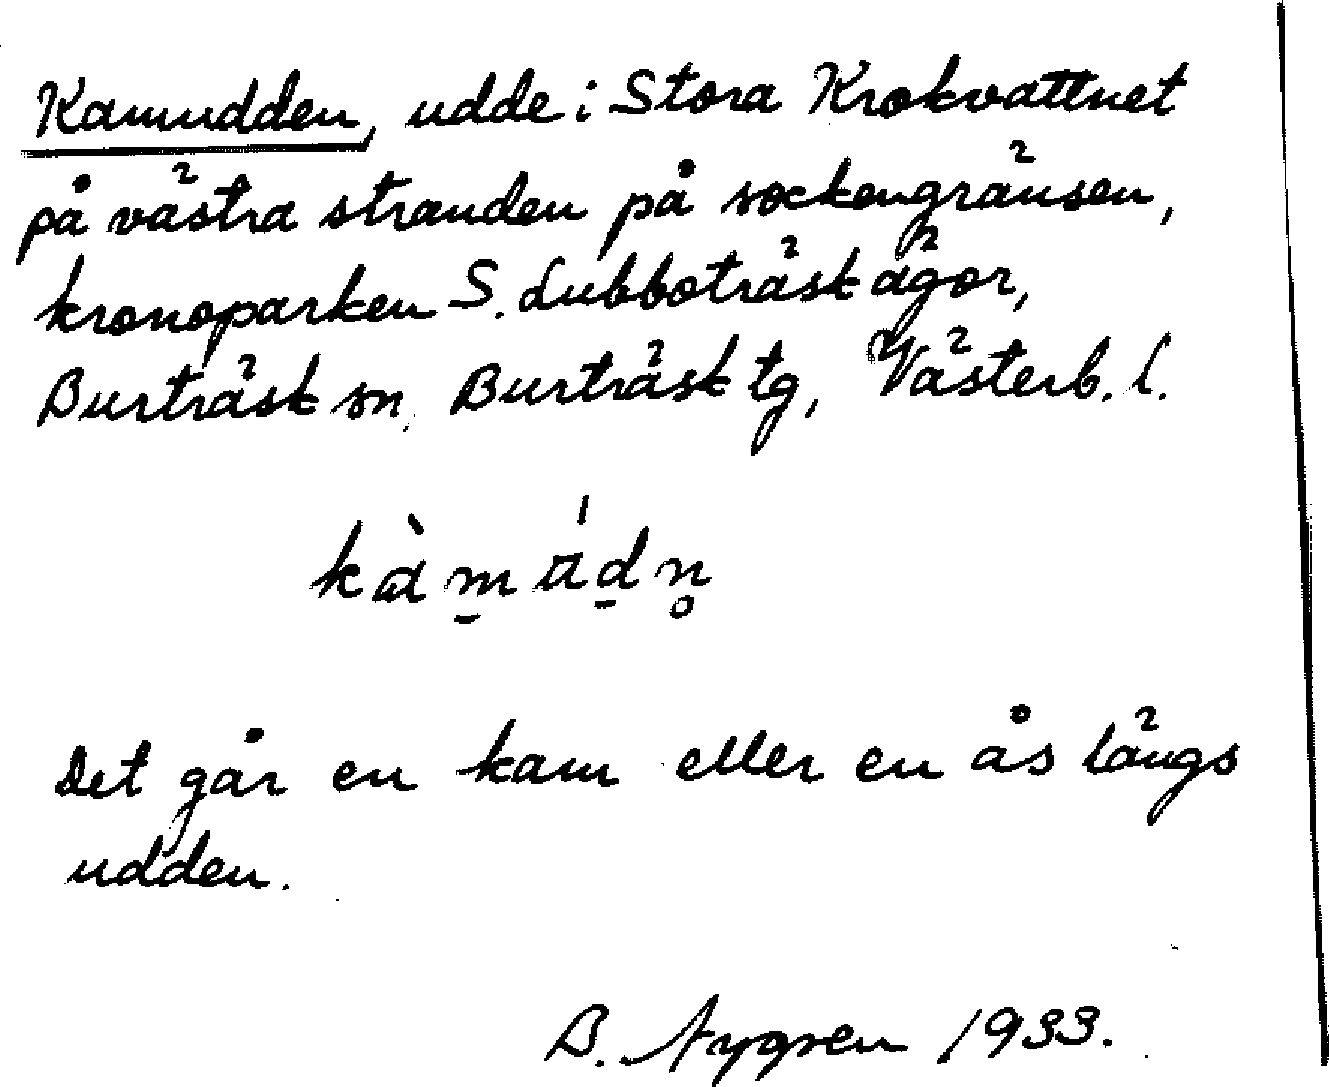 Kamudden, udde i Stora Krokvattnet
på västra stranden på sockengränsen,
kronoparken S. Lubboträsk ägor,
Burträsk sn, Burträsk tg, Västerb. l.
Det går en kam eller en ås längs
udden.
B. Nygren 1933.